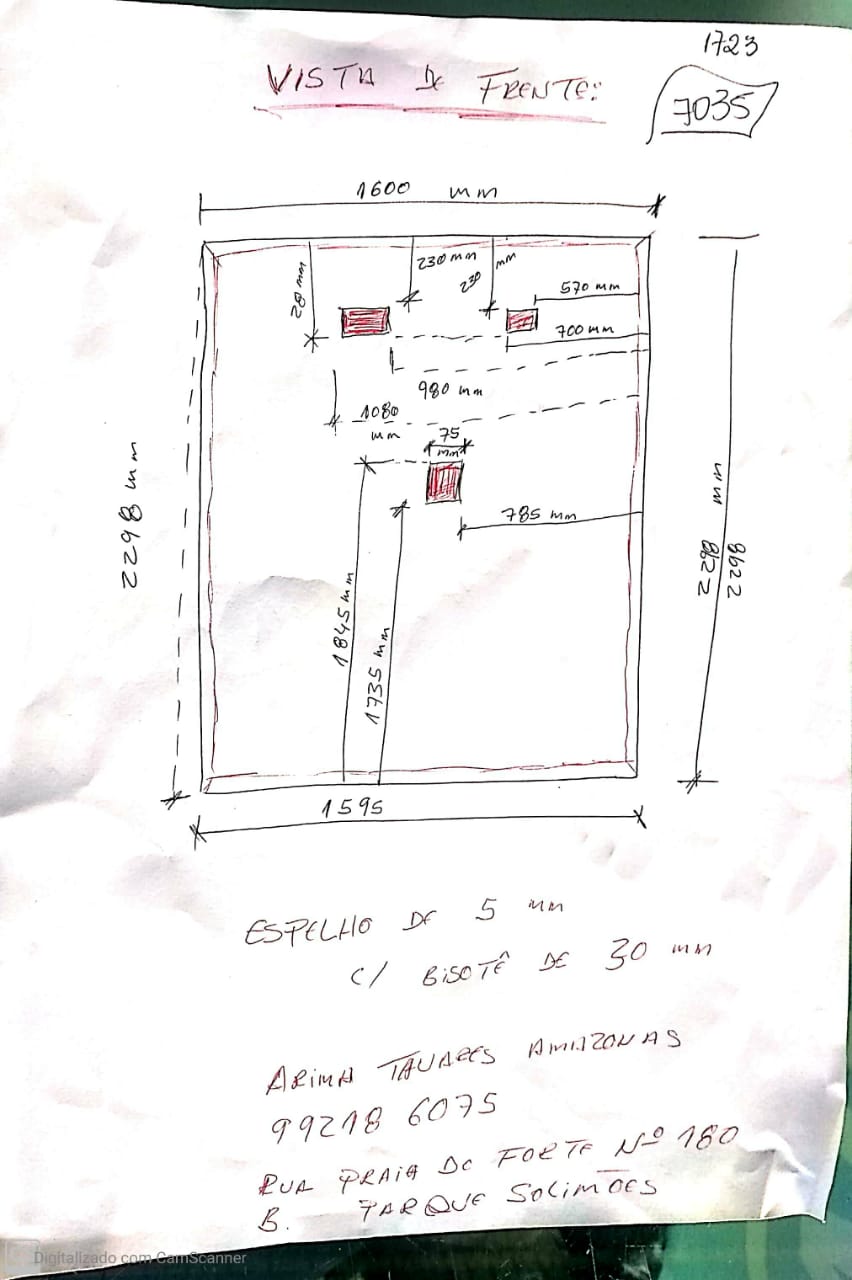 1723
VISTA DE FRENTE:
7035
1600 mm
230 mm
230 mm
28 mm
570 mm
700 mm
980 mm
1080 mm
75 mm
785 mm
2298 mm
2298 mm
2298
1845 mm
1735 mm
1595
ESPELHO DE 5 mm
C/ BISOTÊ DE 30 mm
ARIMA TAVARES AMAZONAS
99218 6075
RUA PRAIA DO FORTE Nº 180
B. PARQUE SOLIMÕES
Digitalizado com CamScanner